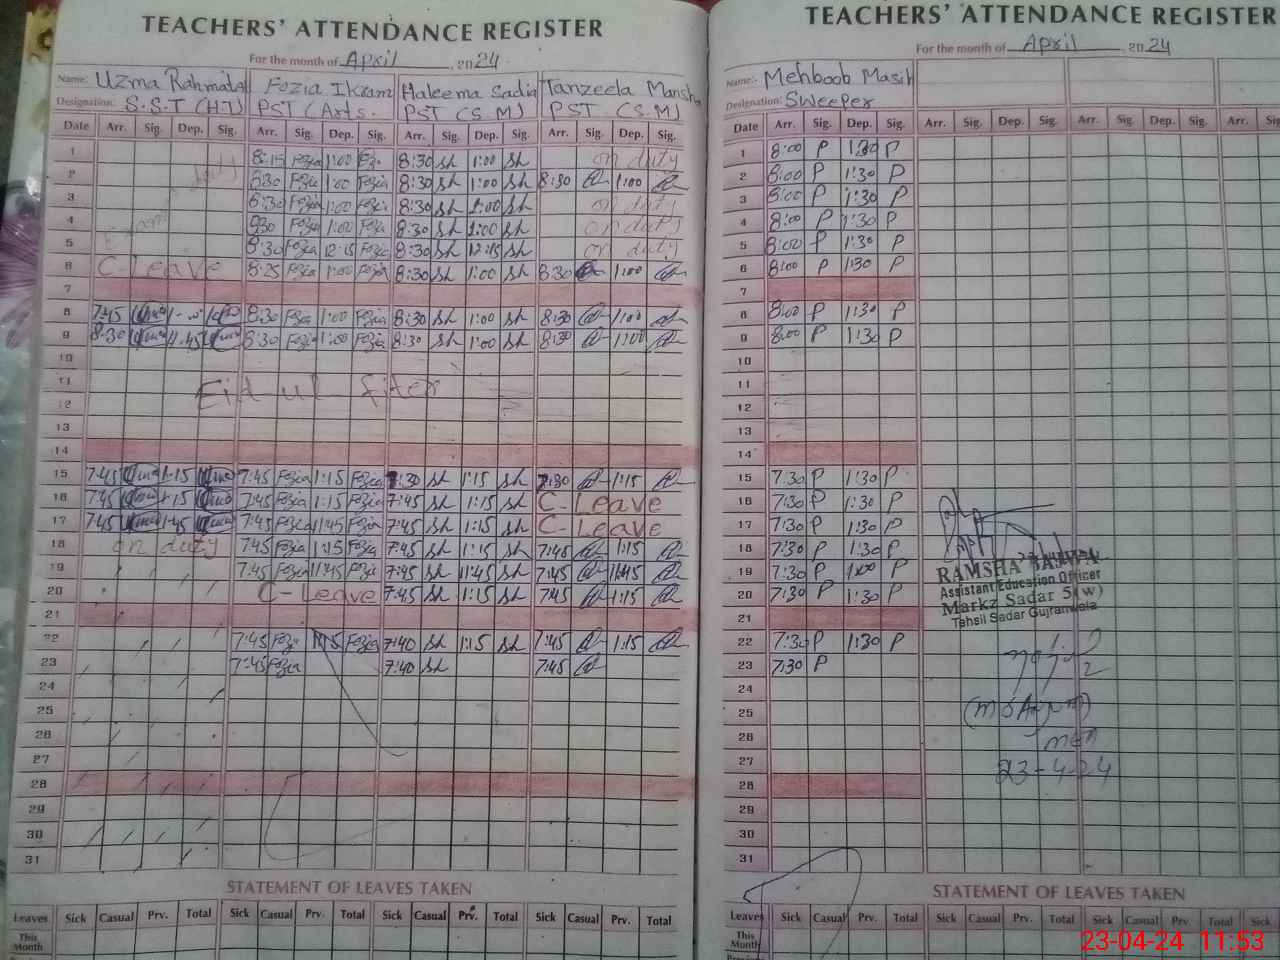 TEACHERS' ATTENDANCE REGISTER
For the month of April, 2024
Name: Uzma Rahmat Fozia Ikram Haleema Sadia Tanzeela Mansha
Designation: S.S.T (H.T) PST (Arts. PST (S.M) PST (S.M)
Date Arr. Sig. Dep. Sig. Arr. Sig. Dep. Sig. Arr. Sig. Dep. Sig. Arr. Sig. Dep. Sig.
1 8:15 Fozia 1:00 8:30 Sh 1:00 Sh on duty
2 duty 8:30 Fozia 1:00 Fozia 8:30 Sh 1:00 Sh 8:30 1:00
3 8:30 Fozia 1:00 Fozia 8:30 Sh 1:00 Sh on duty
4 8:30 Fozia 1:00 Fozia 8:30 Sh 1:00 Sh on duty
5 8:30 Fozia 12:15 Fozia 8:30 Sh 12:15 Sh on duty
6 C-Leave 8:25 Fozia 1:00 Fozia 8:30 Sh 1:00 Sh 8:30 1:00
7
8 7:45 8:30 Fozia 1:00 Fozia 8:30 Sh 1:00 Sh 8:30 1:00
9 8:30 11:45 8:30 Fozia 1:00 Fozia 8:30 Sh 1:00 Sh 8:30 1:00
10
11 Eid ul fiter
12
13
14
15 7:45 1:15 7:45 Fozia 1:15 Fozia 7:30 Sh 1:15 Sh 7:30 1:15
16 7:45 1:15 7:45 Fozia 1:15 Fozia 7:45 Sh 1:15 Sh C-Leave
17 7:45 1:45 7:45 Fozia 1:45 Fozia 7:45 Sh 1:15 Sh C-Leave
18 on duty 7:45 Fozia 1:15 Fozia 7:45 Sh 1:15 Sh 7:45 1:15
19 7:45 Fozia 11:45 Fozia 7:45 Sh 11:45 Sh 7:45 11:45
20 C-Leave 7:45 Sh 1:15 Sh 7:45 1:15
21
22 7:45 Fozia 1:15 Fozia 7:40 Sh 1:15 Sh 7:45 1:15
23 7:45 Fozia 7:40 Sh 7:45
24
25
26
27
28
29
30
31
STATEMENT OF LEAVES TAKEN
Leaves Sick Casual Prv. Total Sick Casual Prv. Total Sick Casual Prv. Total Sick Casual Prv. Total
This Month
TEACHERS' ATTENDANCE REGISTER
For the month of April, 2024
Name:- Mehboob Masih
Designation: Sweeper
Date Arr. Sig. Dep. Sig. Arr. Sig. Dep. Sig. Arr. Sig. Dep. Sig. Arr.
1 8:00 P 1:30 P
2 8:00 P 1:30 P
3 8:00 P 1:30 P
4 8:00 P 1:30 P
5 8:00 P 1:30 P
6 8:00 P 1:30 P
7
8 8:00 P 1:30 P
9 8:00 P 1:30 P
10
11
12
13
14
15 7:30 P 1:30 P
16 7:30 P 1:30 P
17 7:30 P 1:30 P
18 7:30 P 1:30 P
19 7:30 P P
20 7:30 P 1:30 P
21
22 7:30 P 1:30 P
23 7:30 P
24
25
26
27
28
29
30
31
RAMSHA BAJWA
Assistant Education Officer
Markz Sadar 5(w)
Tehsil Sadar Gujranwala
MEA
23-4-24
STATEMENT OF LEAVES TAKEN
Leaves Sick Casual Prv. Total Sick Casual Prv. Total Sick Casual Prv. Total Sick
This Month
23-04-24 11:53